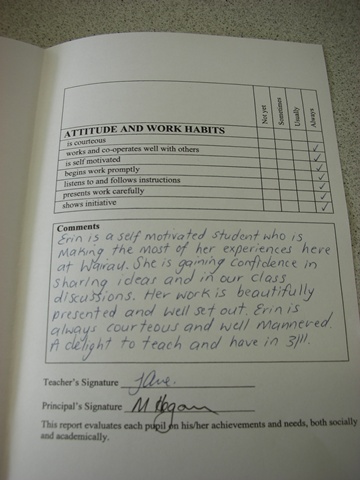 Not yet
Sometimes
Usually
Always
ATTITUDE AND WORK HABITS
is courteous
works and co-operates well with others
is self motivated
begins work promptly
listens to and follows instructions
presents work carefully
shows initiative
Comments
Erin is a self motivated student who is
making the most of her experiences here
at Wairau. She is gaining confidence in
sharing ideas and in our class
discussions. Her work is beautifully
presented and well set out. Erin is
always courteous and well mannered.
A delight to teach and have in 3/11.
Teacher's Signature Jane.
Principal's Signature M Hogan
This report evaluates each pupil on his/her achievements and needs, both socially
and academically.